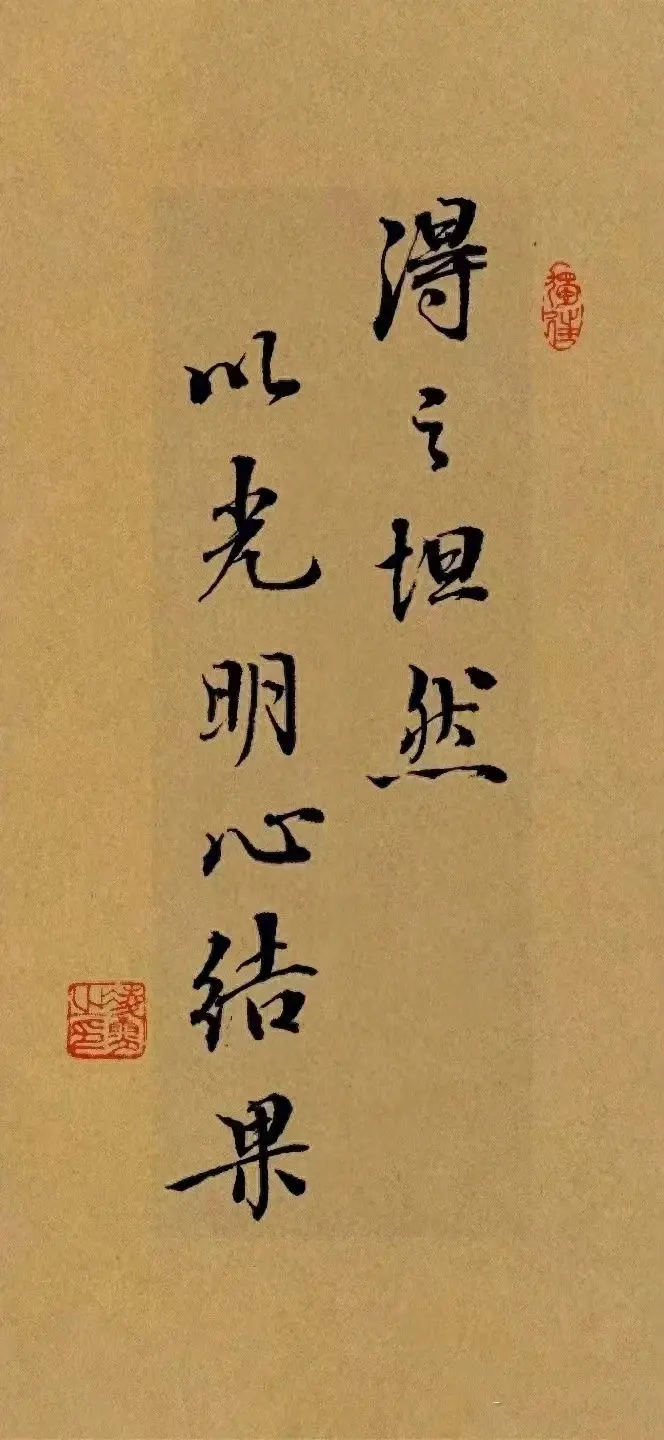 得之坦然
以光明心结果